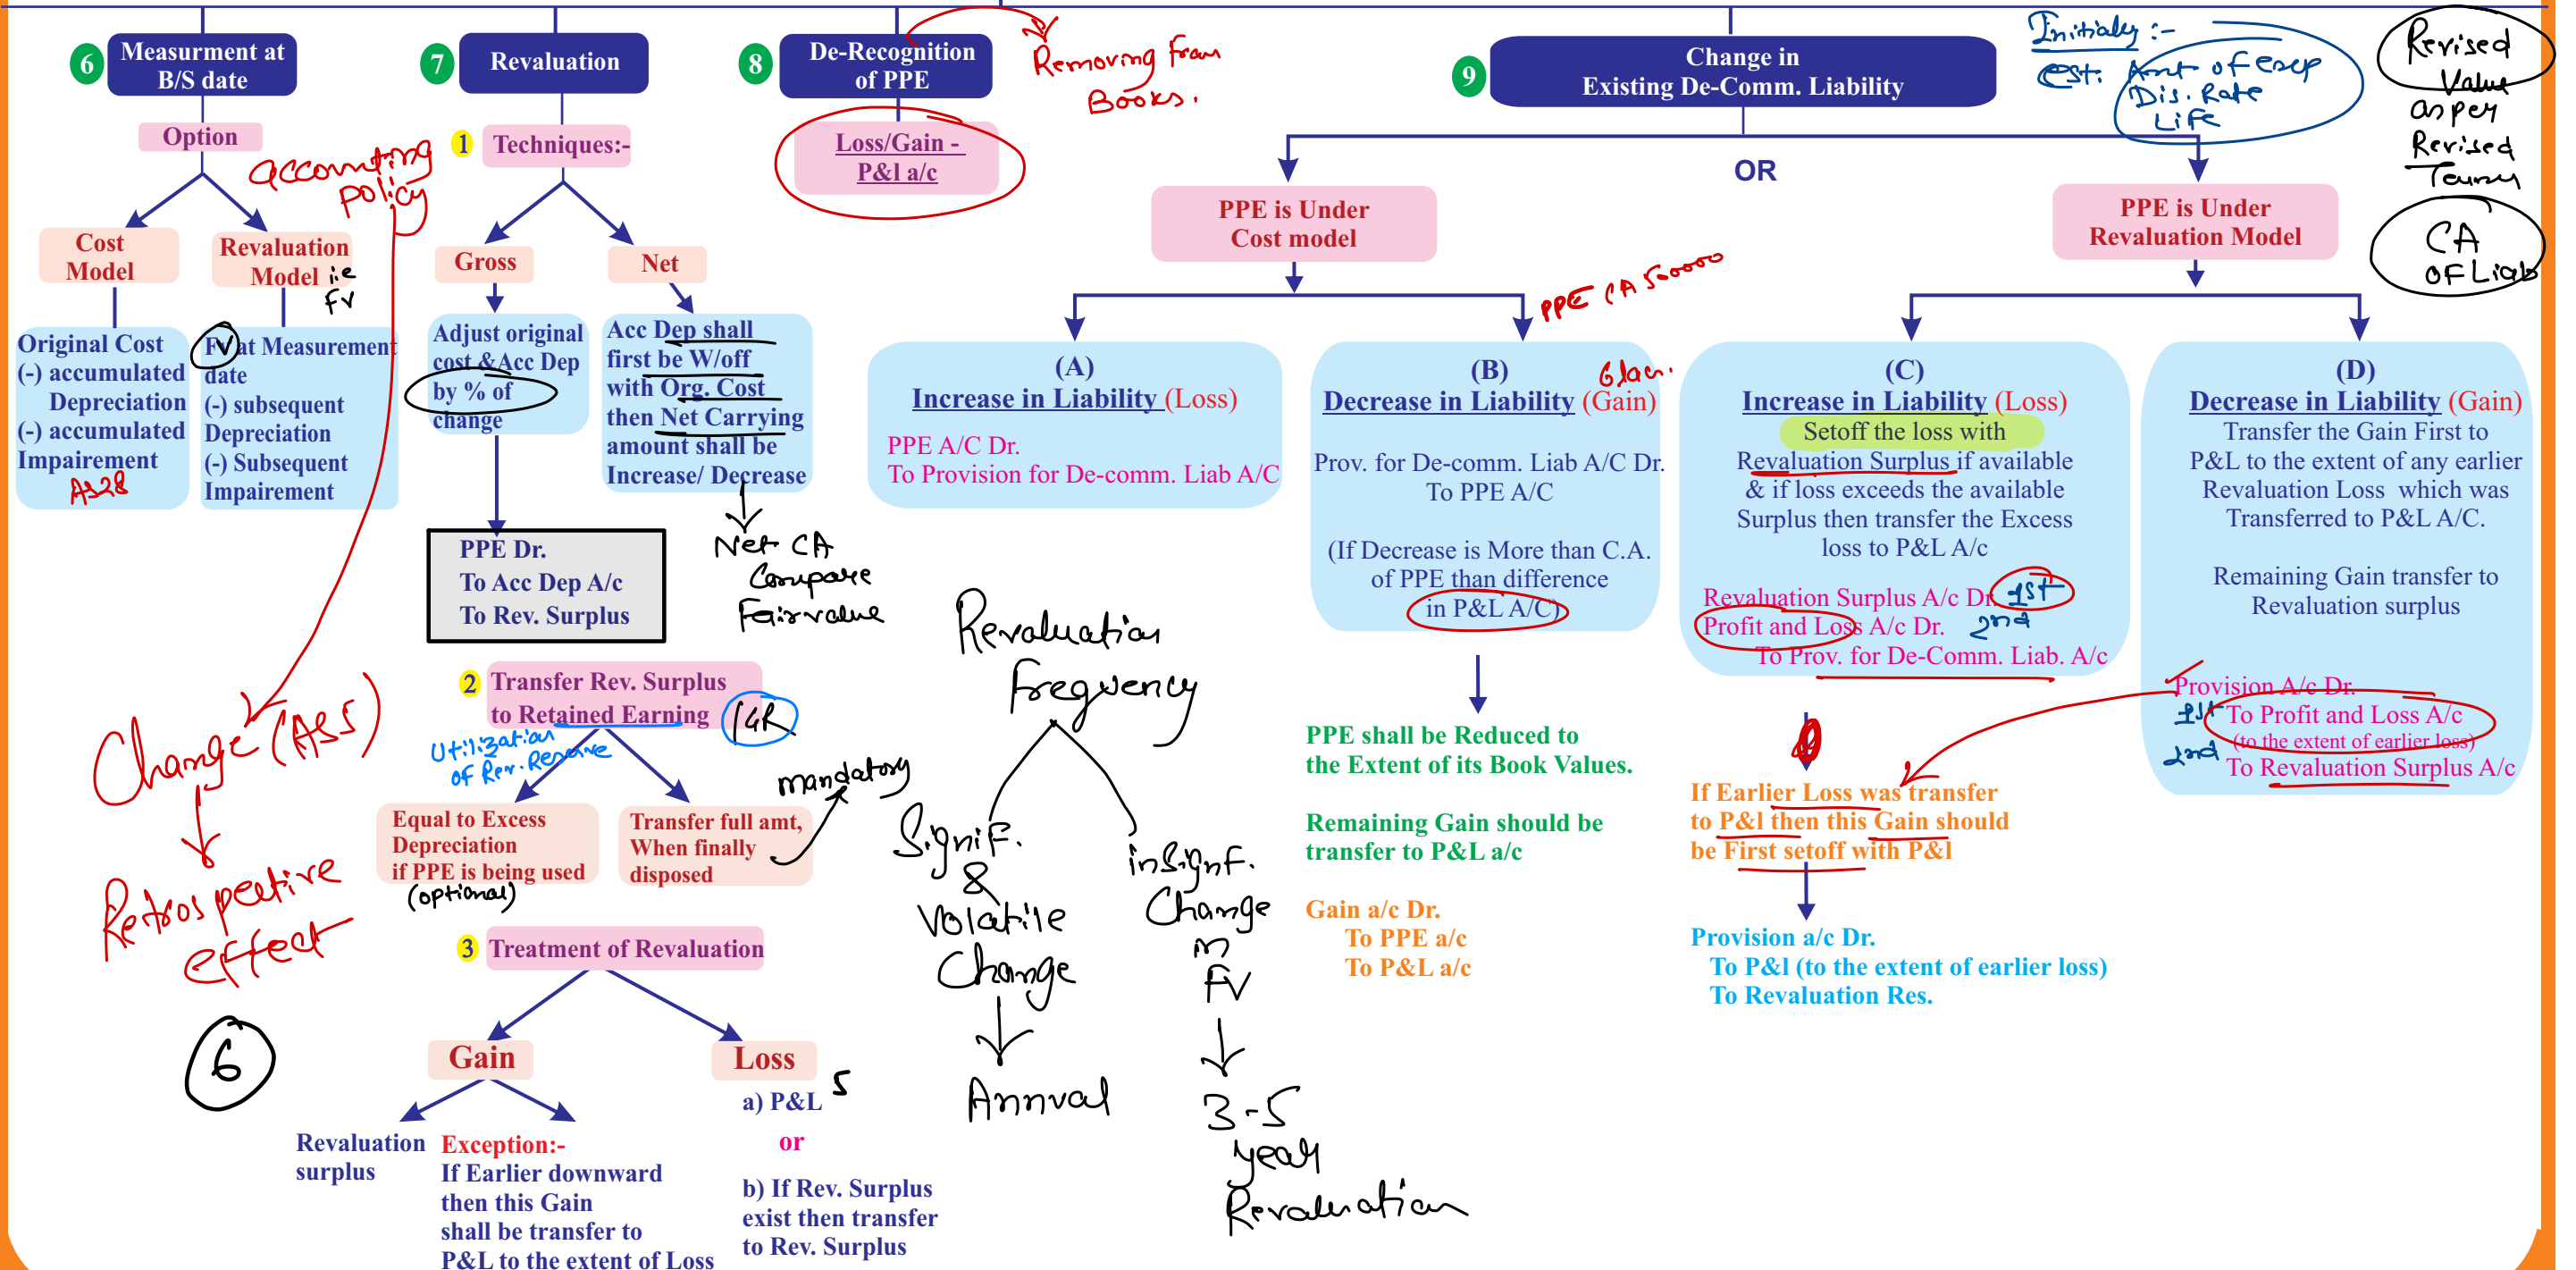 6
Measurment at
B/S date
Option
accounting
policy
Cost
Model
Revaluation
Model i.e
FV
Original Cost
(-) accumulated
Depreciation
(-) accumulated
Impairement
AS28
FV at Measurement
date
(-) subsequent
Depreciation
(-) Subsequent
Impairement
Change (AS5)
Retrospective
effect
6
7
Revaluation
1 Techniques:-
Gross
Net
Adjust original
cost &Acc Dep
by % of
change
Acc Dep shall
first be W/off
with Org. Cost
then Net Carrying
amount shall be
Increase/ Decrease
Net CA
Compare
Fairvalue
PPE Dr.
To Acc Dep A/c
To Rev. Surplus
2 Transfer Rev. Surplus
to Retained Earning
Utilization
of Rev. Reserve
mandatory
Equal to Excess
Depreciation
if PPE is being used
(optional)
Transfer full amt,
When finally
disposed
3 Treatment of Revaluation
Gain
Loss
Revaluation
surplus
Exception:-
If Earlier downward
then this Gain
shall be transfer to
P&L to the extent of Loss
a) P&L
5
or
b) If Rev. Surplus
exist then transfer
to Rev. Surplus
8
De-Recognition
of PPE
Removing from
Books.
Loss/Gain -
P&l a/c
Revaluation
Frequency
Signif.
&
Volatile
Change
Annual
insignf.
Change
in
FV
3-5
year
Revaluation
9
Change in
Existing De-Comm. Liability
Initialy :-
est: Amt of exp
Dis. Rate
Life
Revised
Value
as per
Revised
CA
OF Liab
OR
PPE is Under
Cost model
PPE is Under
Revaluation Model
PPE CA 500000
(A)
Increase in Liability (Loss)
PPE A/C Dr.
To Provision for De-comm. Liab A/C
(B)
Decrease in Liability (Gain)
Prov. for De-comm. Liab A/C Dr.
To PPE A/C
(If Decrease is More than C.A.
of PPE than difference
in P&L A/C)
PPE shall be Reduced to
the Extent of its Book Values.
Remaining Gain should be
transfer to P&L a/c
Gain a/c Dr.
To PPE a/c
To P&L a/c
(C)
Increase in Liability (Loss)
Setoff the loss with
Revaluation Surplus if available
& if loss exceeds the available
Surplus then transfer the Excess
loss to P&L A/c
Revaluation Surplus A/c Dr. 1st
Profit and Loss A/c Dr. 2nd
To Prov. for De-Comm. Liab. A/c
If Earlier Loss was transfer
to P&l then this Gain should
be First setoff with P&l
Provision a/c Dr.
To P&l (to the extent of earlier loss)
To Revaluation Res.
(D)
Decrease in Liability (Gain)
Transfer the Gain First to
P&L to the extent of any earlier
Revaluation Loss which was
Transferred to P&L A/C.
Remaining Gain transfer to
Revaluation surplus
Provision A/c Dr.
1st To Profit and Loss A/c
(to the extent of earlier loss)
2nd To Revaluation Surplus A/c